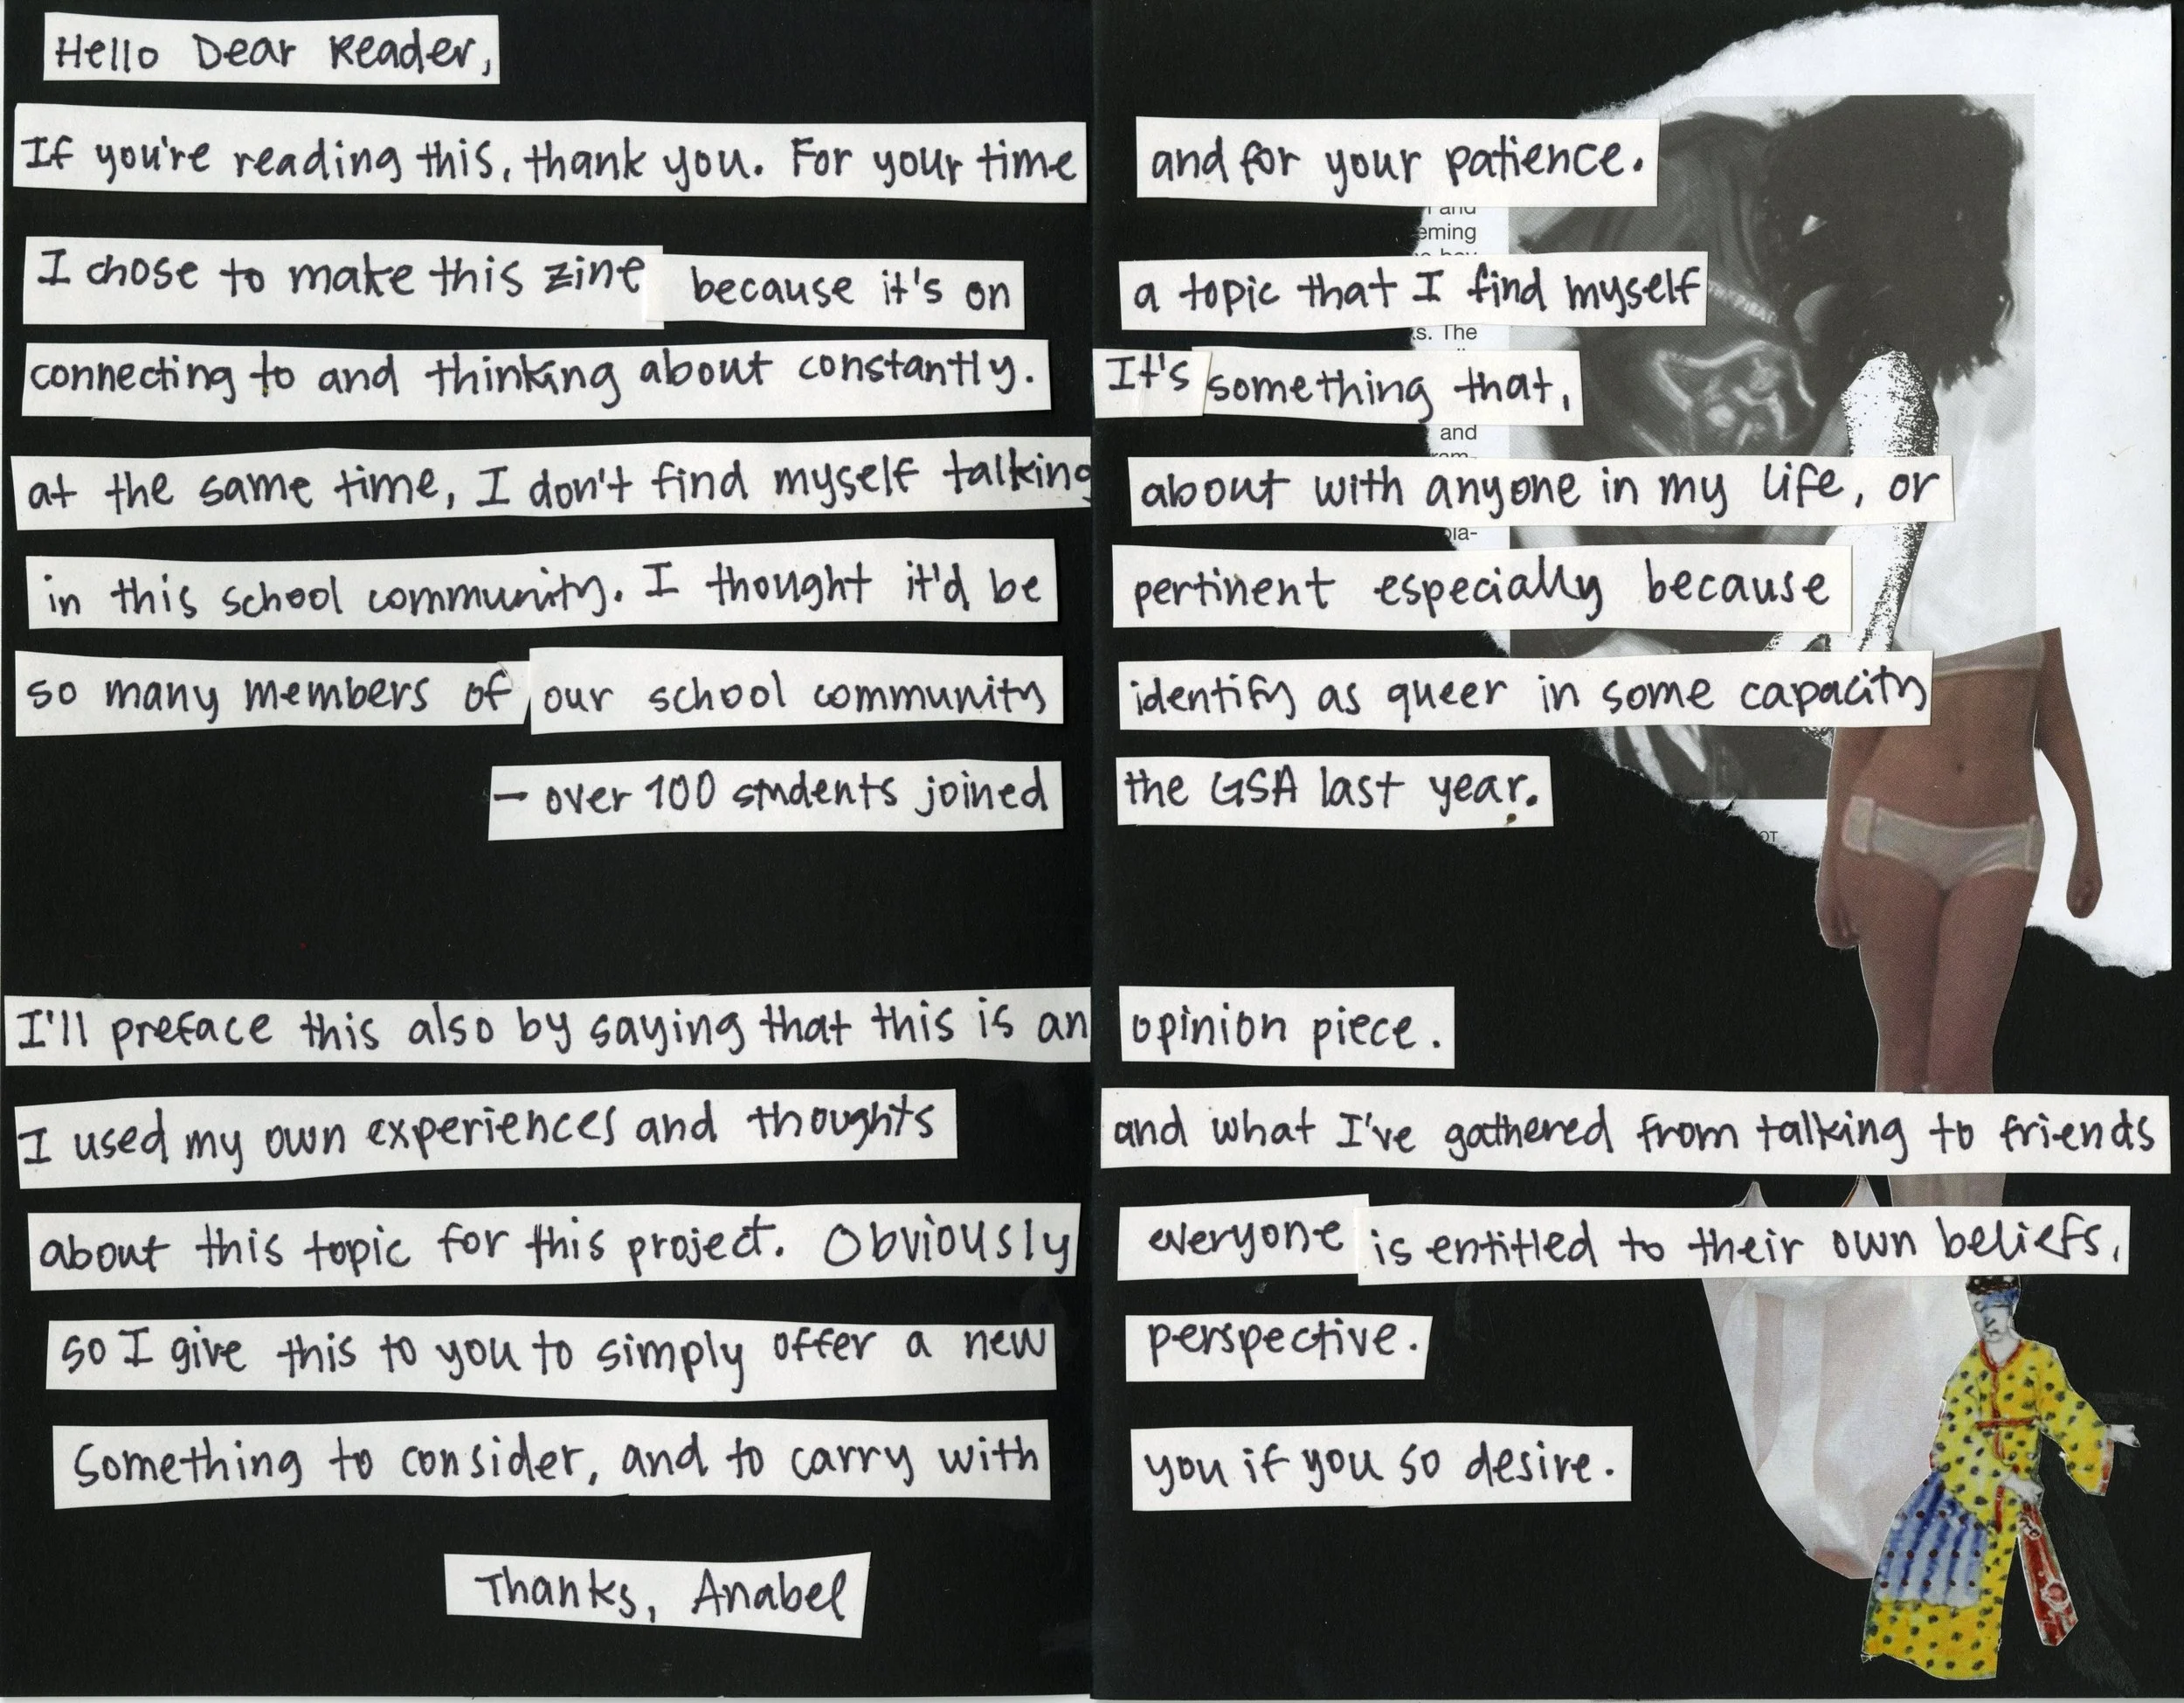 Hello Dear Reader,
If you're reading this, thank you. For your time and for your patience.
I chose to make this zine because it's on a topic that I find myself
connecting to and thinking about constantly. It's something that,
at the same time, I don't find myself talking about with anyone in my life, or
in this school community. I thought it'd be pertinent especially because
so many members of our school community identify as queer in some capacity
– over 100 students joined the GSA last year.
I'll preface this also by saying that this is an opinion piece.
I used my own experiences and thoughts and what I've gathered from talking to friends
about this topic for this project. Obviously everyone is entitled to their own beliefs,
so I give this to you to simply offer a new perspective.
Something to consider, and to carry with you if you so desire.
Thanks, Anabel
and
eming
s. The
and